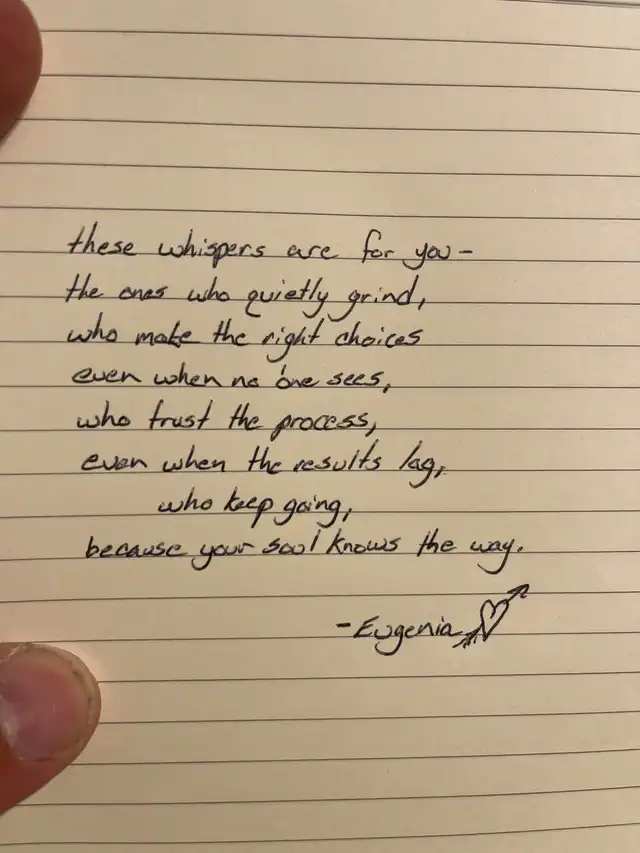 these whispers are for you-
the ones who quietly grind,
who make the right choices
even when no one sees,
who trust the process,
even when the results lag,
who keep going,
because your soul knows the way.
-Eugenia